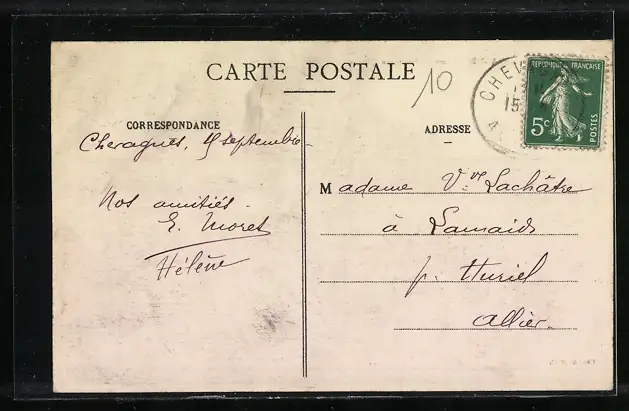 CARTE POSTALE
10
CORRESPONDANCE
ADRESSE
Cheragues, 15 septembre
Nos amitiés.
E. Moret
Hélène
Madame Vve Lachâtre
à Lamaids
p. Huriel
Allier.
CHEV
15
RÉPUBLIQUE FRANÇAISE
5c
POSTES